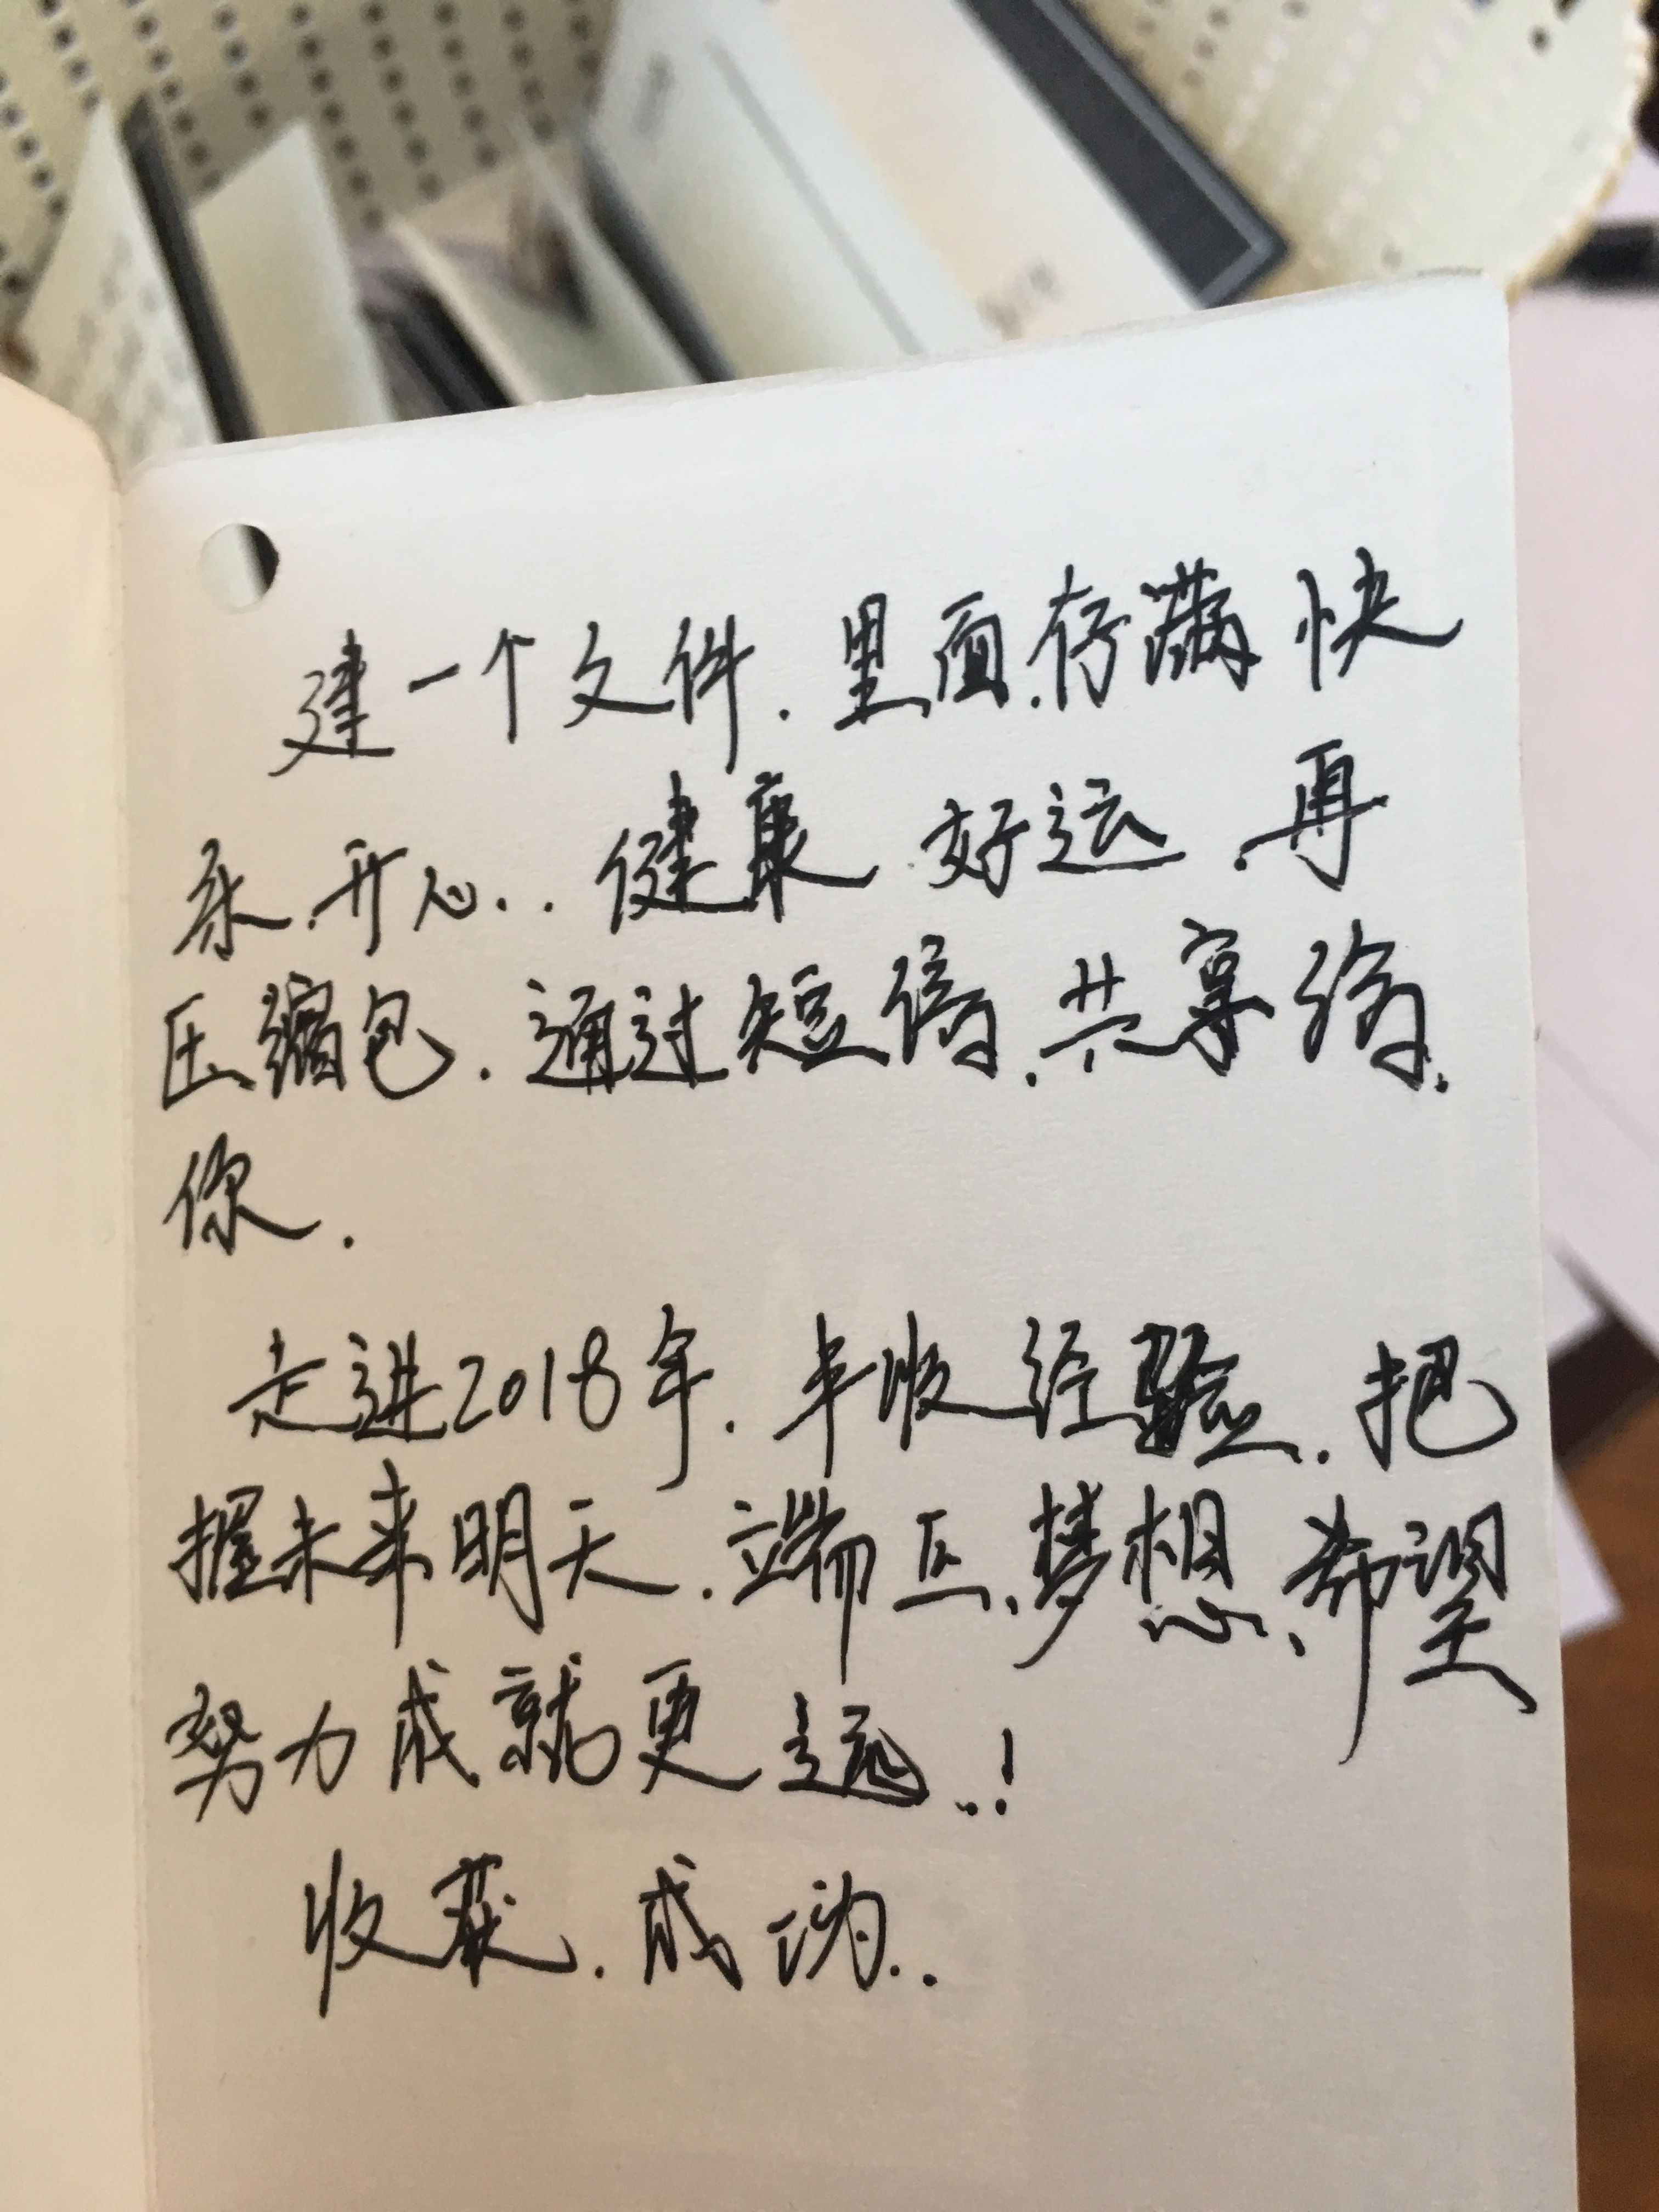 建一个文件.里面.存满快
乐.开心..健康.好运.再
压缩包.通过短信.共享给.
你.
走进2018年.丰收经验.把
握未来明天.端正、梦想、希望
努力成就更遠..!
收获.成功..